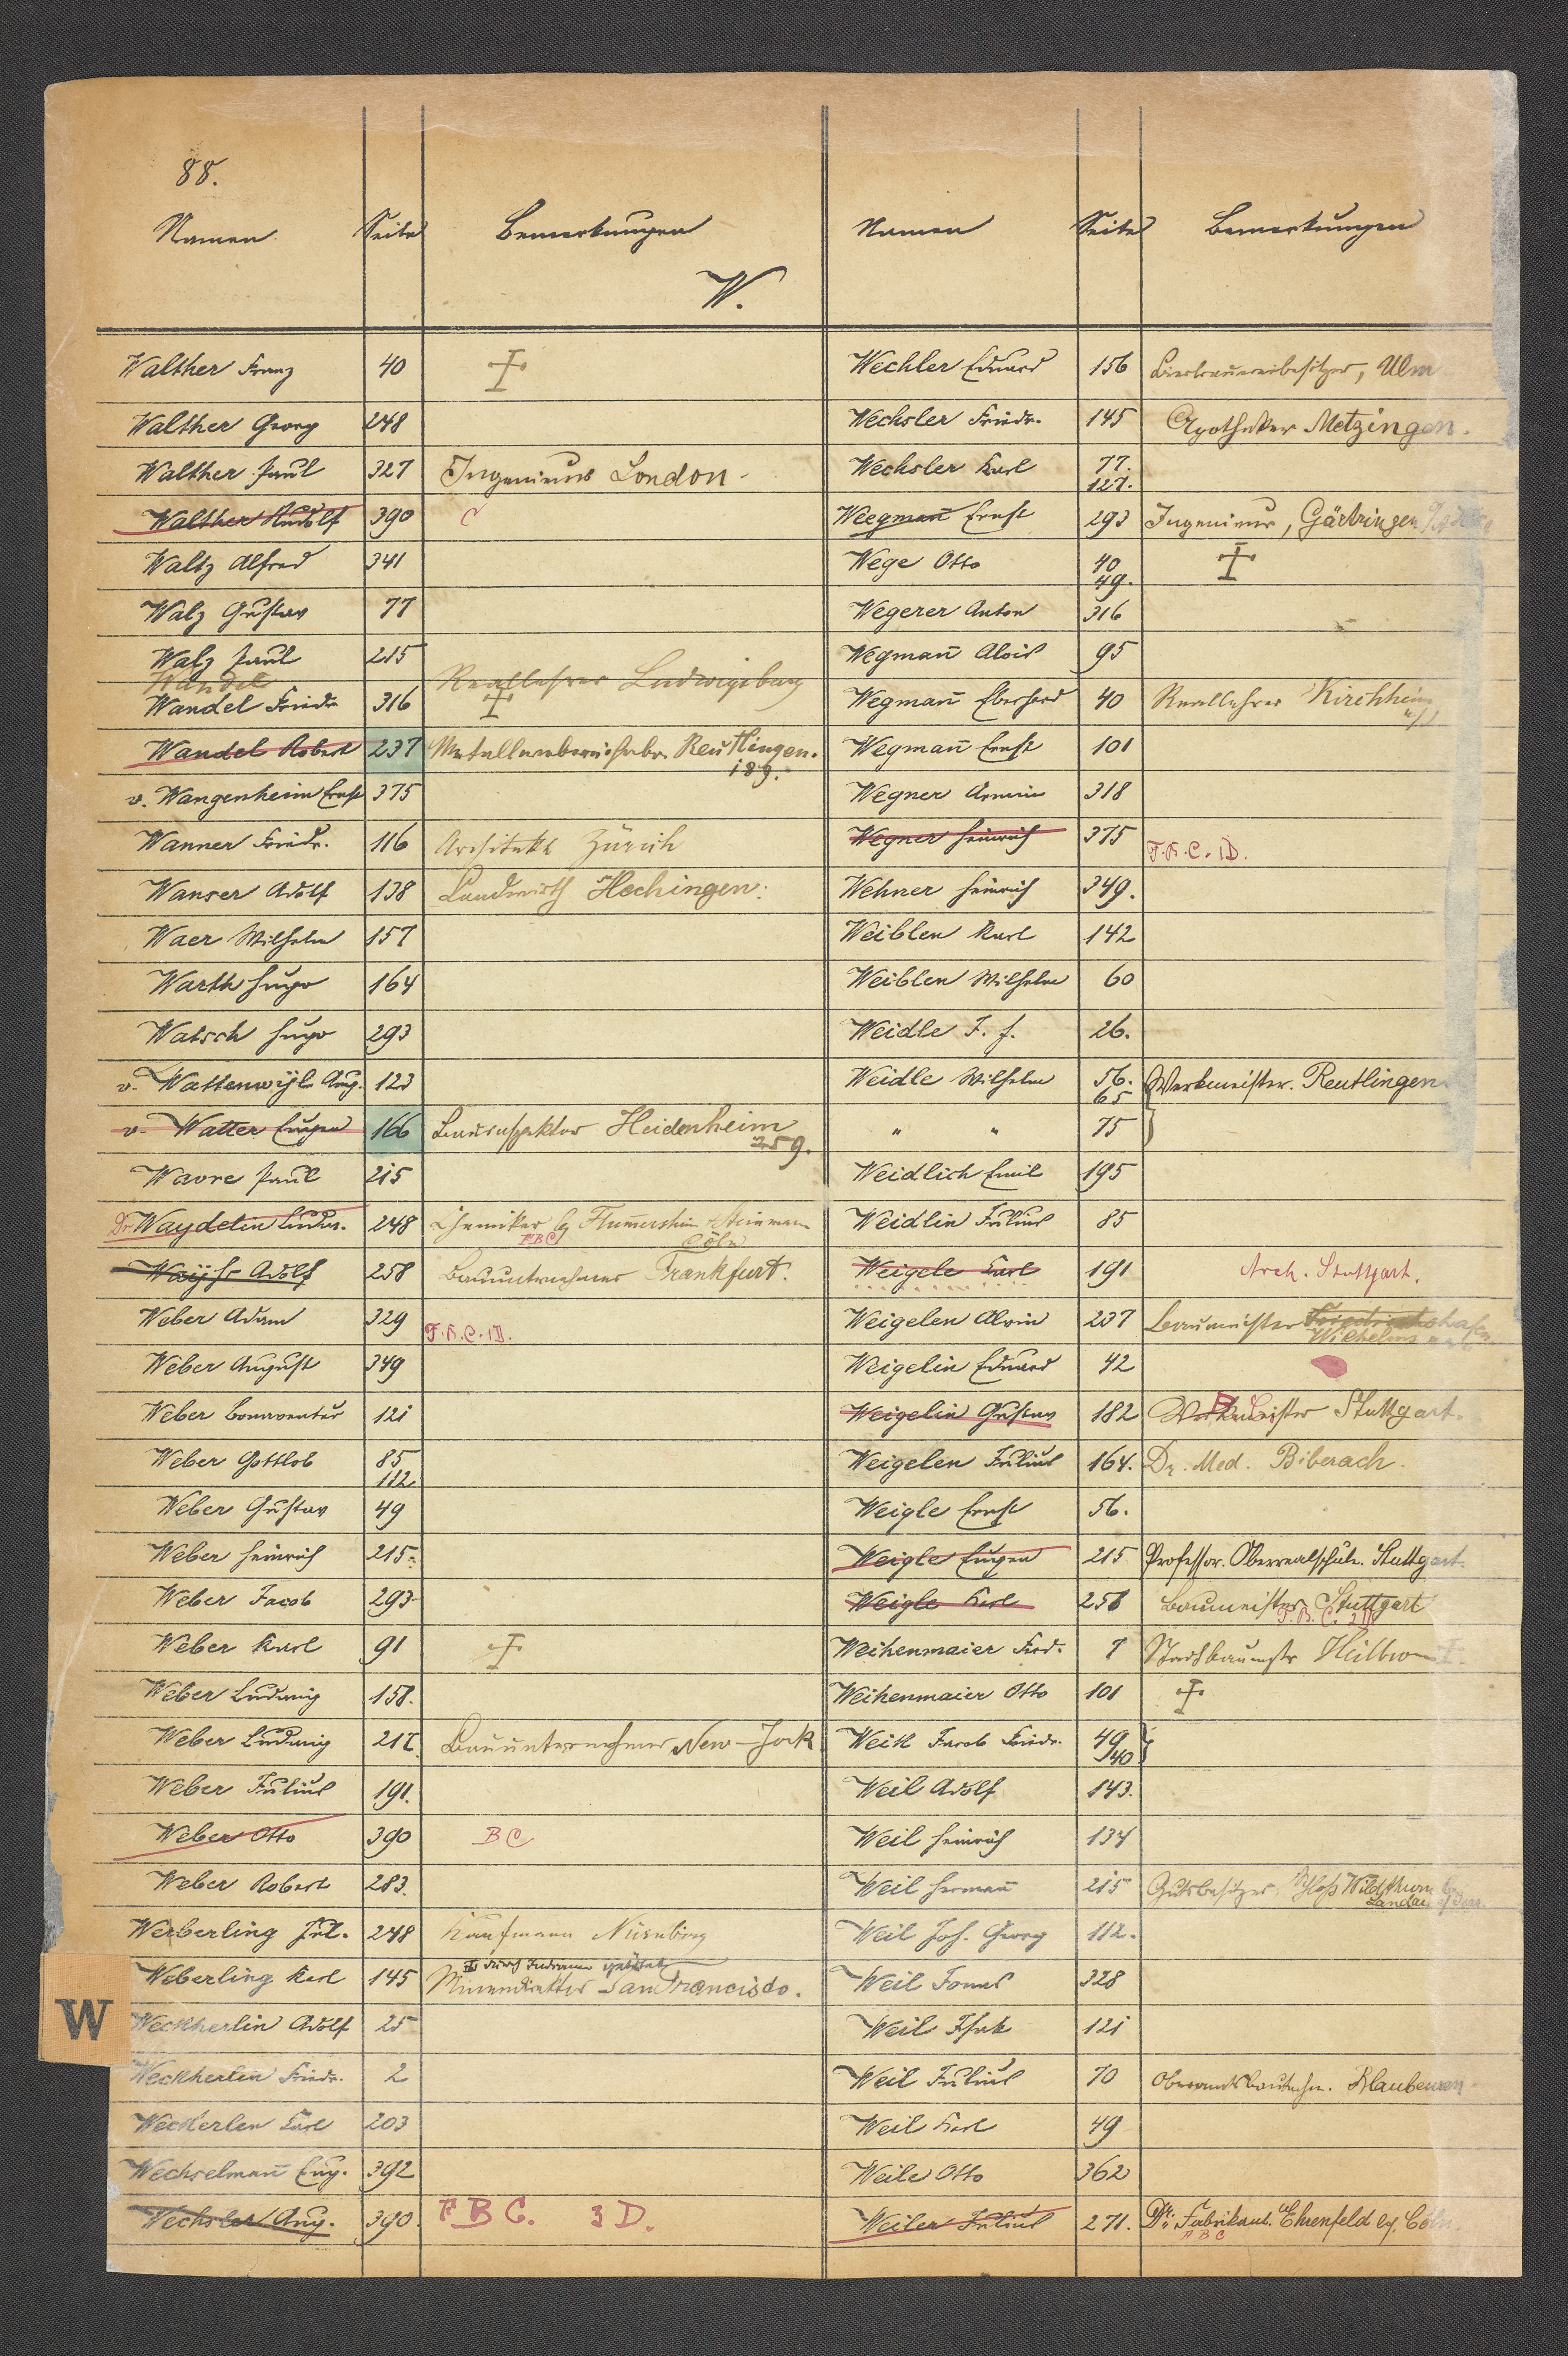 88.
Namen Seite Bemerkungen Namen Seite Bemerkungen
W.
Walther Franz 40
Walther Georg 248
Walther Paul 327 Ingenieur London.
Walther Rudolf 390 C
Waltz Alfred 341
Walz Gustav 77
Walz Paul 215 Reallehrer Ludwigsburg
Wandel
Wandel Friedr. 316
Wandel Robert 237 Reutlingen.
189.
v. Wangenheim Ernst 375
Wanner Friedr. 116 Architekt Zürich
Wanser Adolf 138 Landwirth Hechingen.
Waer Wilhelm 157
Warth Hugo 164
Watsch Hugo 293
v. Wattenwijl Aug. 123
v. Watter Eugen 166 Bauinspektor Heidenheim
259.
Wavre Paul 215
Dr. Waydelin Ludw. 248 Chemiker Steinmann
FBC Cöln
Adolf 258 Bauunternehmer Frankfurt.
Weber Adam 329
F.B.C.1D.
Weber August 349
Weber Bonaventur 121
Weber Gottlob 85
112
Weber Gustav 49
Weber Heinrich 215.
Weber Jacob 293
Weber Karl 91
Weber Ludwig 158.
Weber Ludwig 217. Bauunternehmer New-York
Weber Julius 191.
Weber Otto 390 BC
Weber Robert 283.
Weberling Jul. 248 Kaufmann Nürnberg
durch Indianer getötet
Weberling Karl 145 Minendirektor San Francisco.
W
Weckherlin Adolf 25
Weckherlin Friedr. 2
Weckerlen Karl 203
Wechselmañ Eug. 392
Wechsler Aug. 390. FBC. 3D.
Wechler Eduard 156 Bierbrauereibesitzer, Ulm
Wechsler Friedr. 145 Apotheker Metzingen.
Wechsler Karl 77.
127.
Weegmañ Ernst 293 Ingenieur, Gärtringen
Wege Otto 40
49.
Wegerer Anton 316
Wegmañ Alois 95
Wegmañ Eberhard 40 Reallehrer Kirchheim
Wegmañ Ernst 101
Wegner Armin 318
Wegner Heinrich 375
F.B.C.1D.
Wehner Heinrich 349.
Weiblen Karl 142
Weiblen Wilhelm 60
Weidle J. F. 26.
Weidle Wilhelm 56. Werkmeister. Reutlingen
65
" " 75
Weidlich Emil 195
Weidlin Julius 85
Weigele Karl 191 Arch. Stuttgart.
Weigelen Alwin 237 Baumeister Friedrichshafen
Wilhelms
Weigelin Eduard 42
Weigelin Gustav 182 Werkmeister Stuttgart.
Weigelen Julius 164. Dr. Med. Biberach.
Weigle Ernst 56.
Weigle Eugen 215 Professor. Oberrealschule. Stuttgart.
Weigle Karl 258 Baumeister Stuttgart
F.B.C.
Weihenmaier Frd. 7 Stadtbaumstr Heilbronn
Weihenmaier Otto 101
Weik Jacob Friedr. 49
40
Weil Adolf 143.
Weil Heinrich 134
Weil Hermañ 215 Gutsbesitzer, Schloss Wildthurn
Landau
Weil Joh. Georg 112.
Weil Jonas 328
Weil Isak 121
Weil Julius 70 Oberamtsbautechn. Blaubeuren
Weil Karl 49
Weile Otto 362
Weiler Julius 271. Dr. Fabrikant. Ehrenfeld b/. Cöln.
FBC